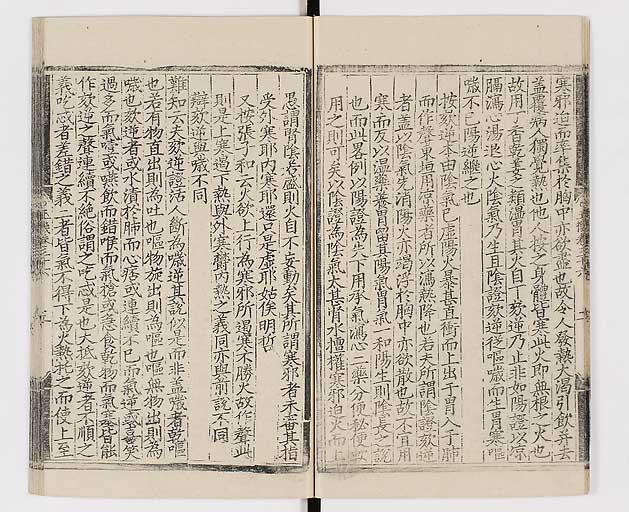 寒邪迫而卒集於胸中亦欲盡也故令人發熱大渴引飲弃去
盖覆病人獨覺熱也他人按之身體皆寒此火即無根之火也
故用丁香乾姜之類溫胃其火自下欬逆乃止非如陽證以凉
膈瀉心湯退心火陰氣乃生且陰證欬逆從嘔噦而生胃寒嘔
噦不已陽逆繼之也
按欬逆本由陰氣已虛陽火暴甚直衝而上出于胃入于肺
而作聲東垣用凉藥者所以瀉熱降也若夫所謂陰證欬逆
者盖以陰氣先消陽火亦竭浮於胸中亦欲散也故不宜用
寒而反以溫藥養胃留其陽氣胃氣一和陽生則陰長之說
也而此畧例以陽證為共下用承氣瀉心二藥分便秘便軟
用之則可矣以陰證為陰氣太甚腎水擅權寒邪迫火而上
愚謂腎陰若盛則火自不妄動矣其所謂寒邪者未審其指
受外寒耶内寒耶還只是虛耶姑俟明哲
又按張子和云人欲上行為寒邪所遏寒不勝火故作聲此
則是上寒遏下熱與外寒欝内熱之義同亦與前說不同
辯欬逆與噦不同
難知云夫欬逆證活人斷為噦逆其說似是而非盖噦者乾嘔
也若有物直出則為吐也嘔物旋出則為嘔也嘔無物出則為
噦也欬逆者或水漬於肺而心痞或連續不已而氣逆或喜笑
過多而氣噎或嚥飲而錯喉而氣搶或急食乾物而氣壅皆能
作欬逆之聲連續不絕俗謂之吃忒是也大抵欬逆者不順之
義吃忒者差錯之義二者皆氣不得下為火熱托之而使上至